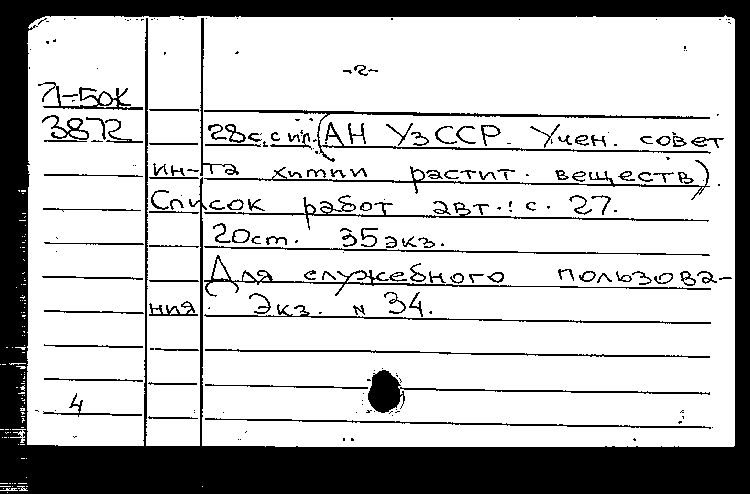 -2-
71-50к
3872
28с. с ил. (АН УзССР. Учен. совет
ин-та химии растит. веществ).
Список работ авт.: с. 27.
20ст. 35экз.
Для служебного пользова-
ния. Экз. № 34.
4